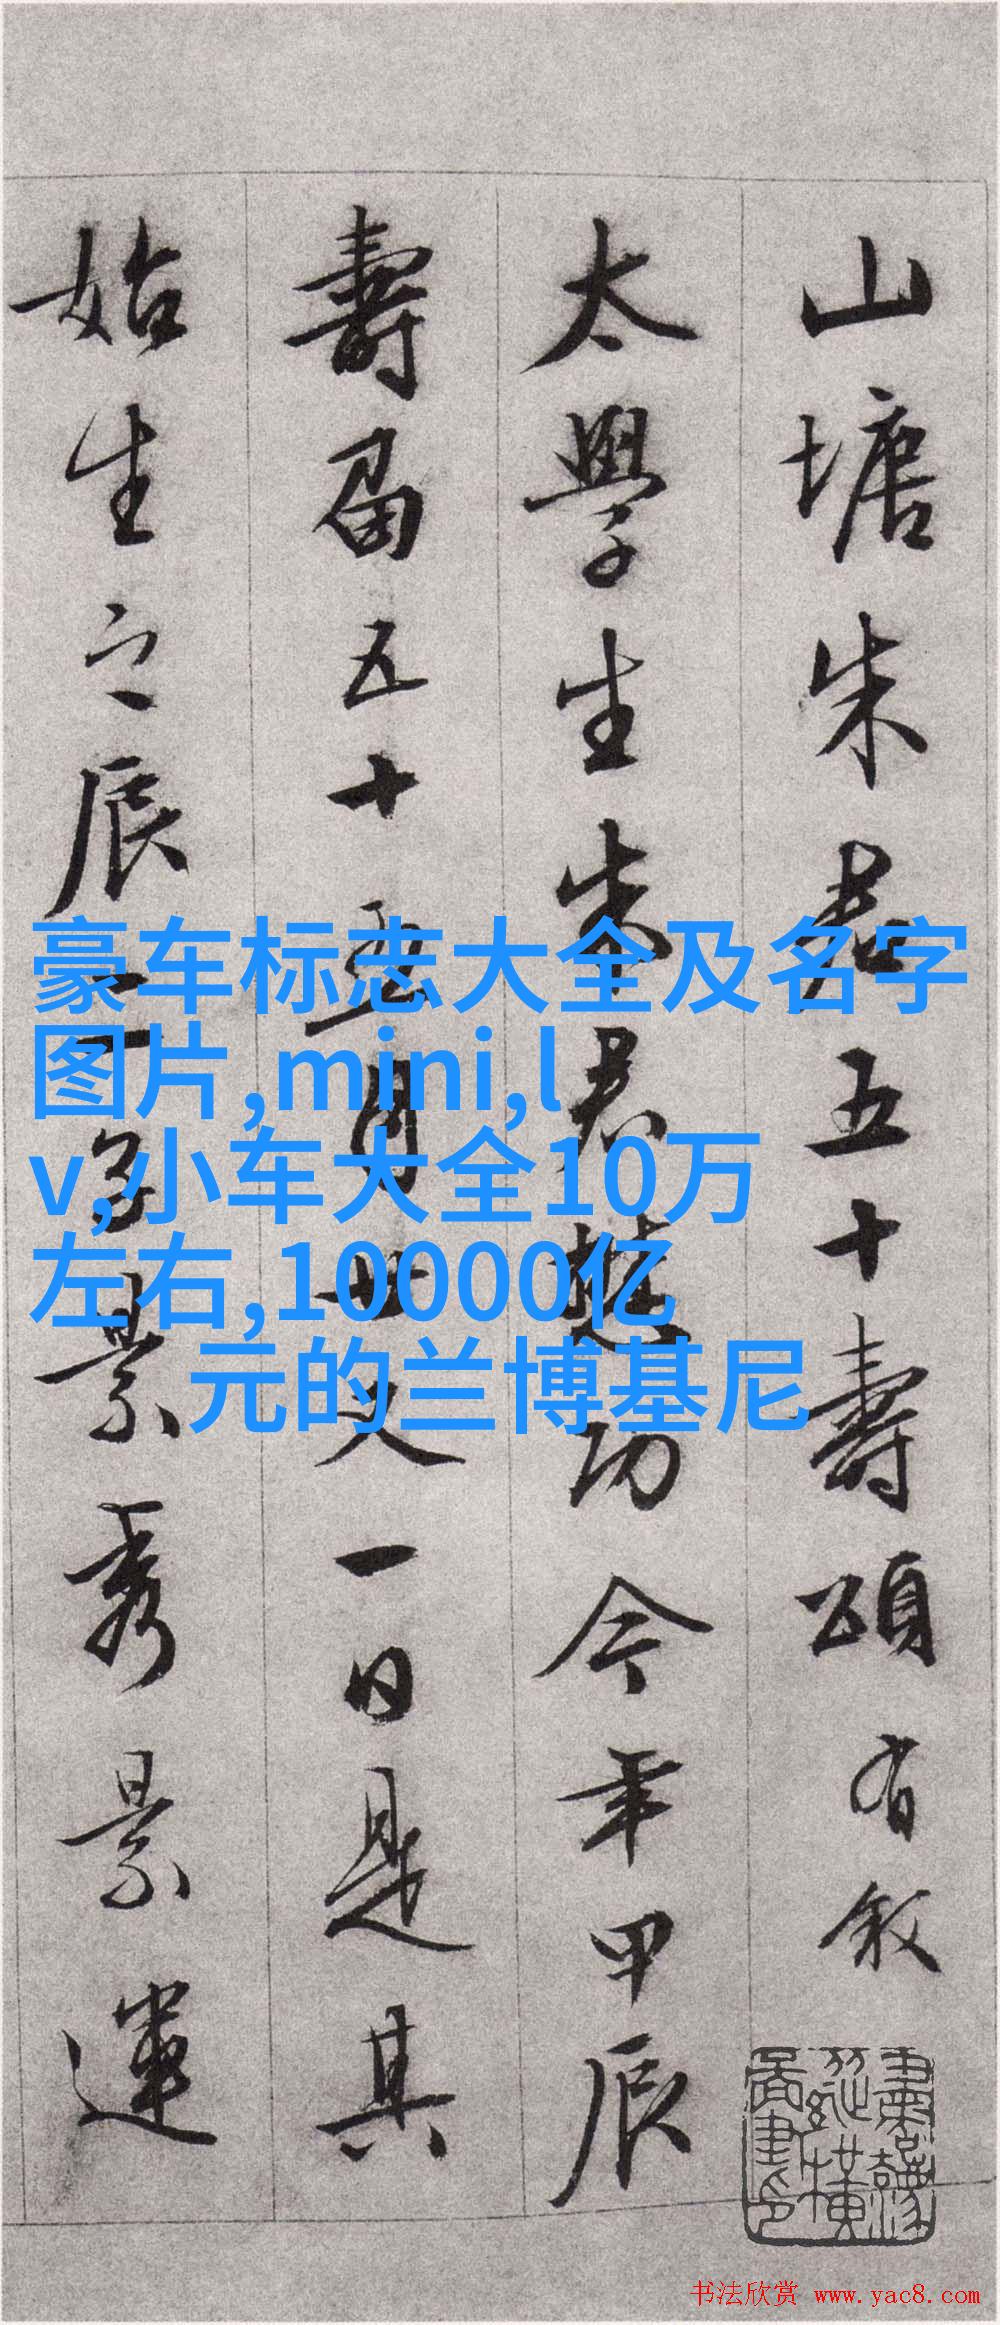 山塘朱君五十壽頌有敘
太學生朱君懋功今年甲辰
壽届五十月廿又一日是其
始生之辰景秀景運
豪车标志大全及名字
图片,mini,l
v,小车大全10万
左右,10000亿
元的兰博基尼
书法欣赏 www.yac8.com